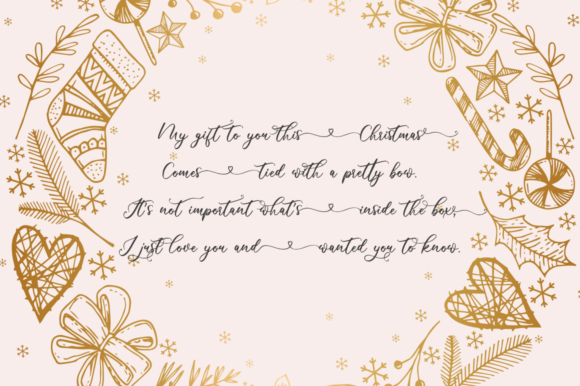 My gift to you this Christmas
Comes tied with a pretty bow.
It's not important what's inside the box,
I just love you and wanted you to know.